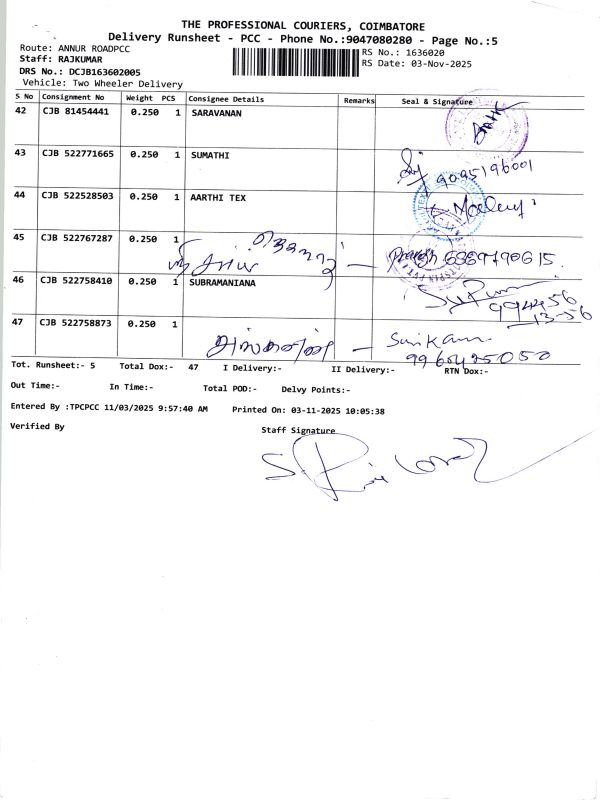 THE PROFESSIONAL COURIERS, COIMBATORE
Delivery Runsheet - PCC - Phone No.:9047080280 - Page No.:5
Route: ANNUR ROADPCC
RS No.: 1636020
Staff: RAJKUMAR
RS Date: 03-Nov-2025
DRS No.: DCJB163602005
Vehicle: Two Wheeler Delivery
S No Consignment No Weight PCS Consignee Details Remarks Seal & Signature
42 CJB 81454441 0.250 1 SARAVANAN
43 CJB 522771665 0.250 1 SUMATHI
9095196001
44 CJB 522528503 0.250 1 AARTHI TEX
45 CJB 522767287 0.250 1
6369790615
46 CJB 522758410 0.250 1 SUBRAMANIANA
994456
13-56
47 CJB 522758873 0.250 1
Tot. Runsheet:- 5 Total Dox:- 47 I Delivery:- II Delivery:- RTN Dox:-
Out Time:- In Time:- Total POD:- Delvy Points:-
Entered By :TPCPCC 11/03/2025 9:57:40 AM Printed On: 03-11-2025 10:05:38
Verified By Staff Signature